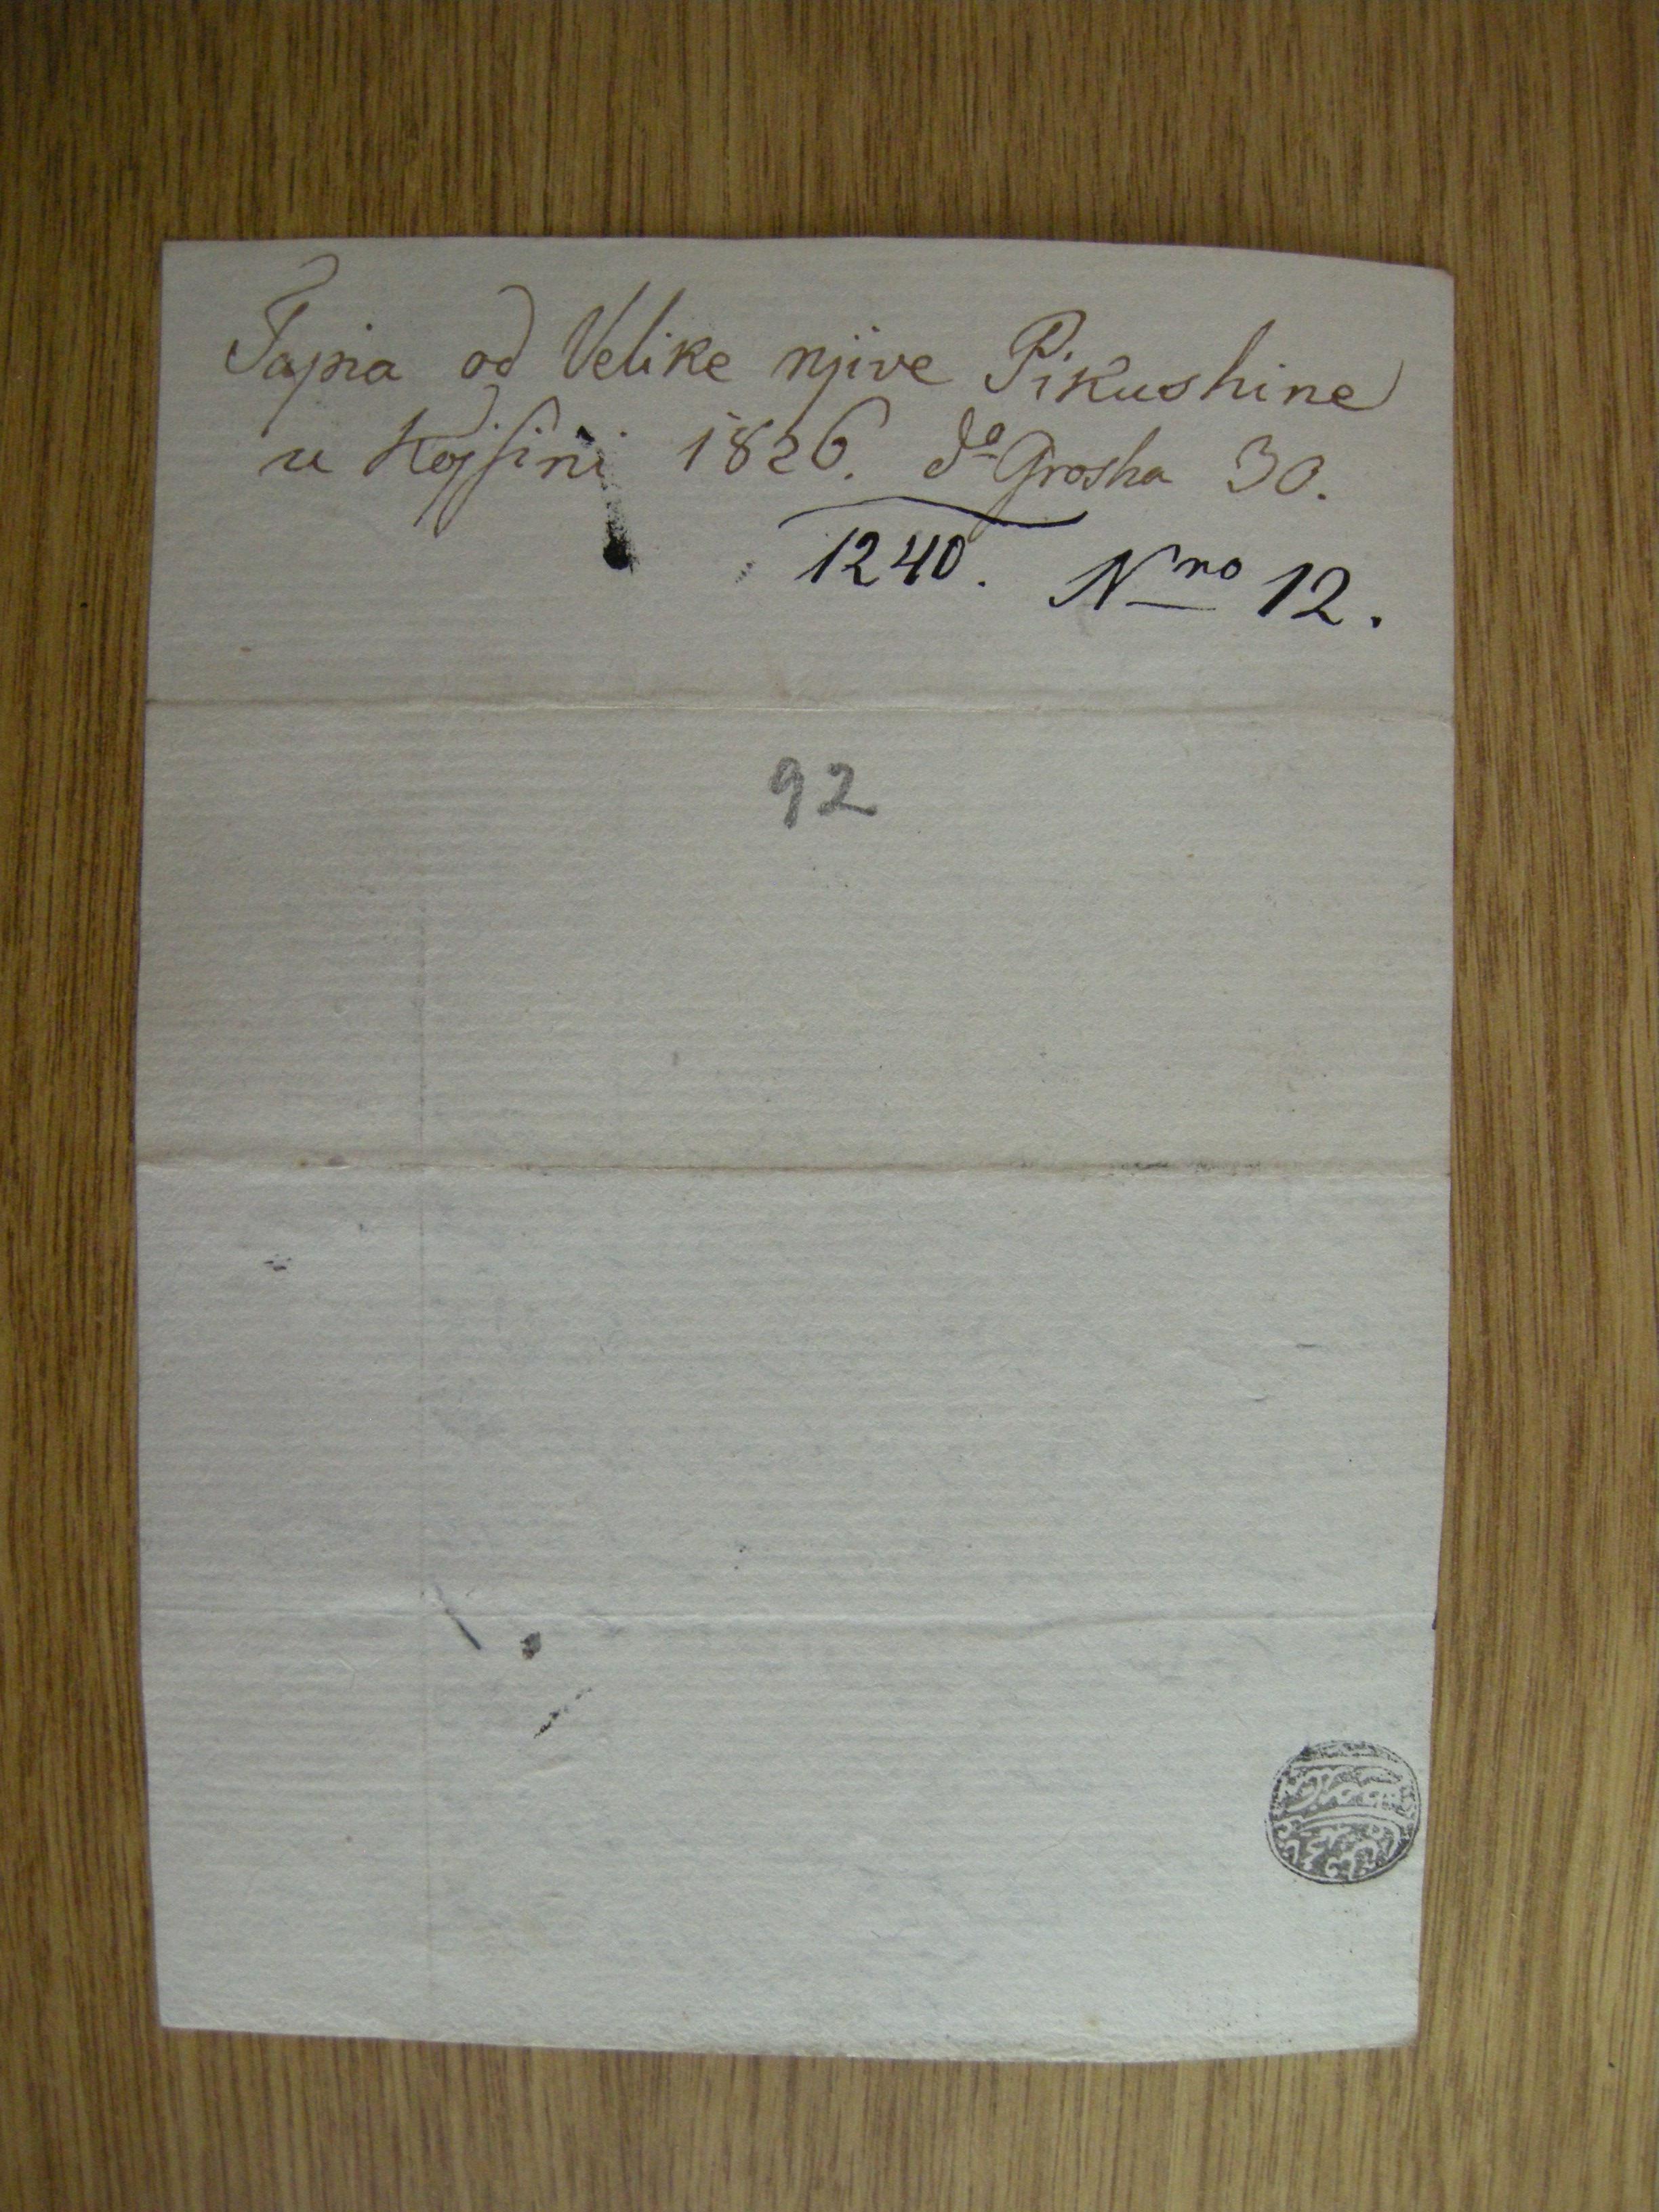 Tapia od Velike njive Pikushine
u Kojsini 1826. da Grosha 30.
1240. Nro 12.
92